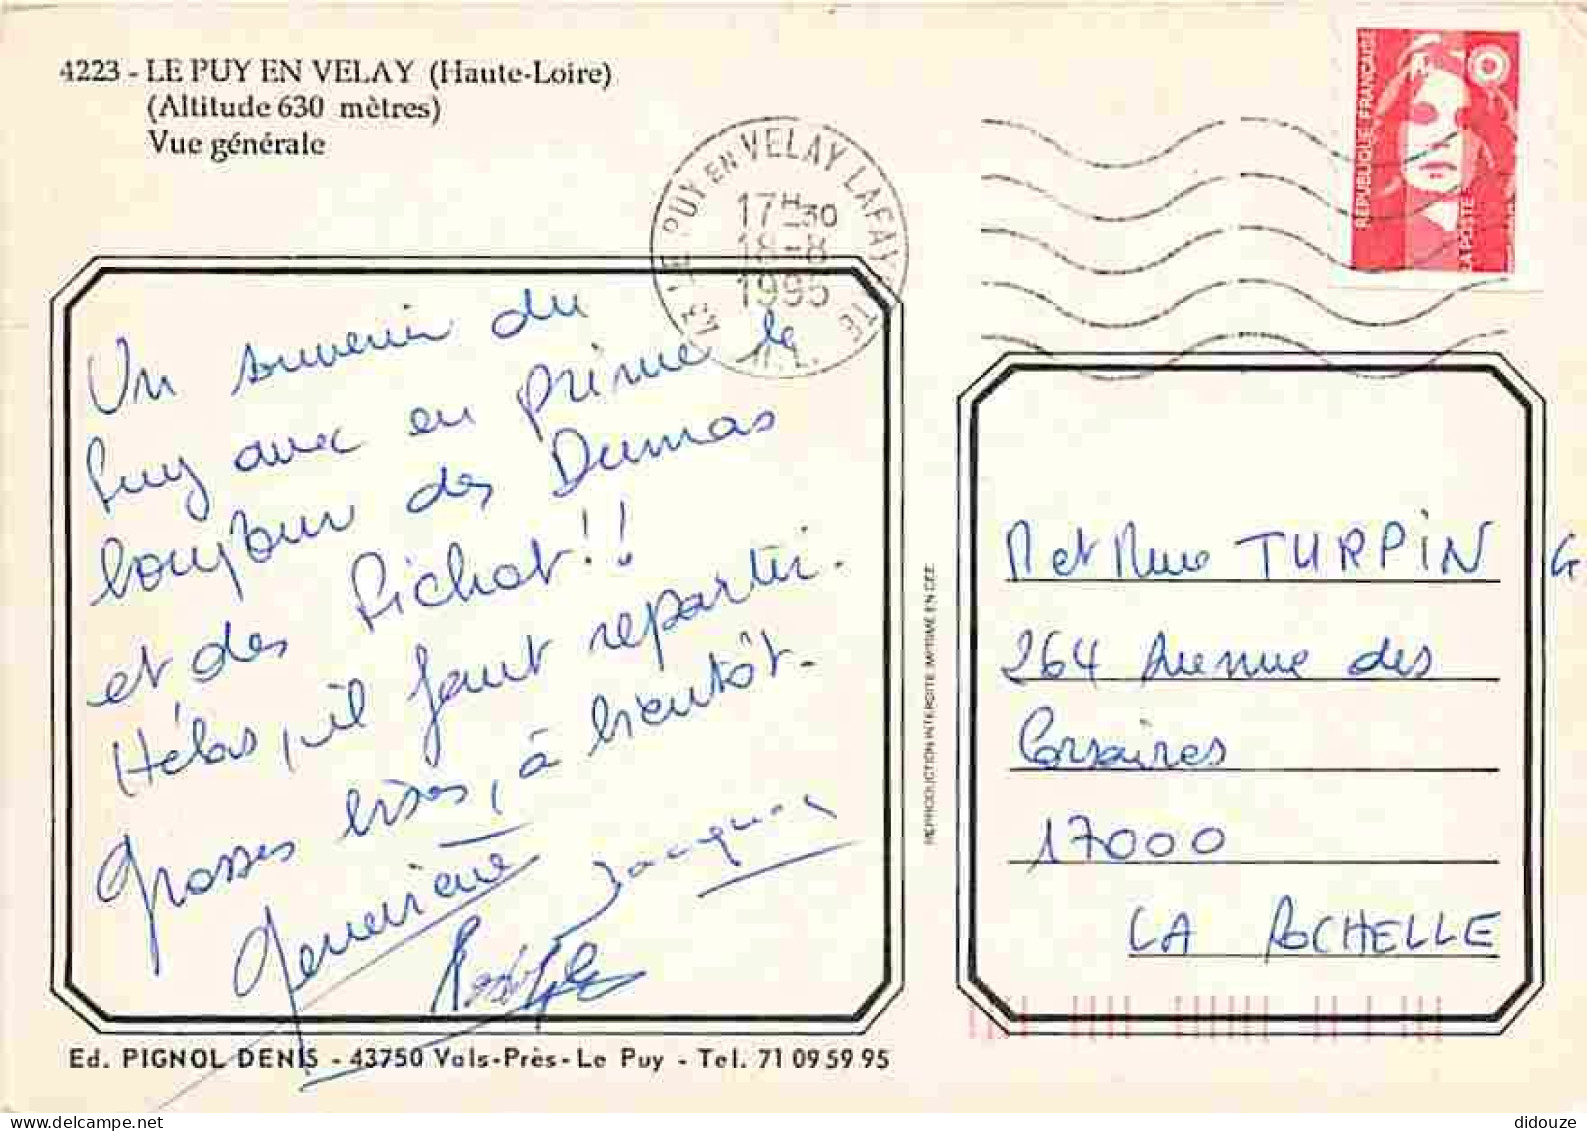 4223 - LE PUY EN VELAY (Haute-Loire)
(Altitude 630 mètres)
Vue générale
43 LE PUY EN VELAY LAFAYETTE
17H30
18-8
1995
H.L.
REPUBLIQUE FRANÇAISE
LA POSTE
Un souvenir du
Puy avec en prime le
bonjour des Dumas
et des Pichot!!
Hélas, il faut repartir.
Grosses bises, à bientôt.
Geneviève Jacques
REPRODUCTION INTERDITE IMPRIME EN CEE
M et Mme TURPIN G
264 Avenue des
Corsaires
17000
LA ROCHELLE
Ed. PIGNOL DENIS - 43750 Vals-Près-Le Puy - Tel. 71 09 59 95
didouze